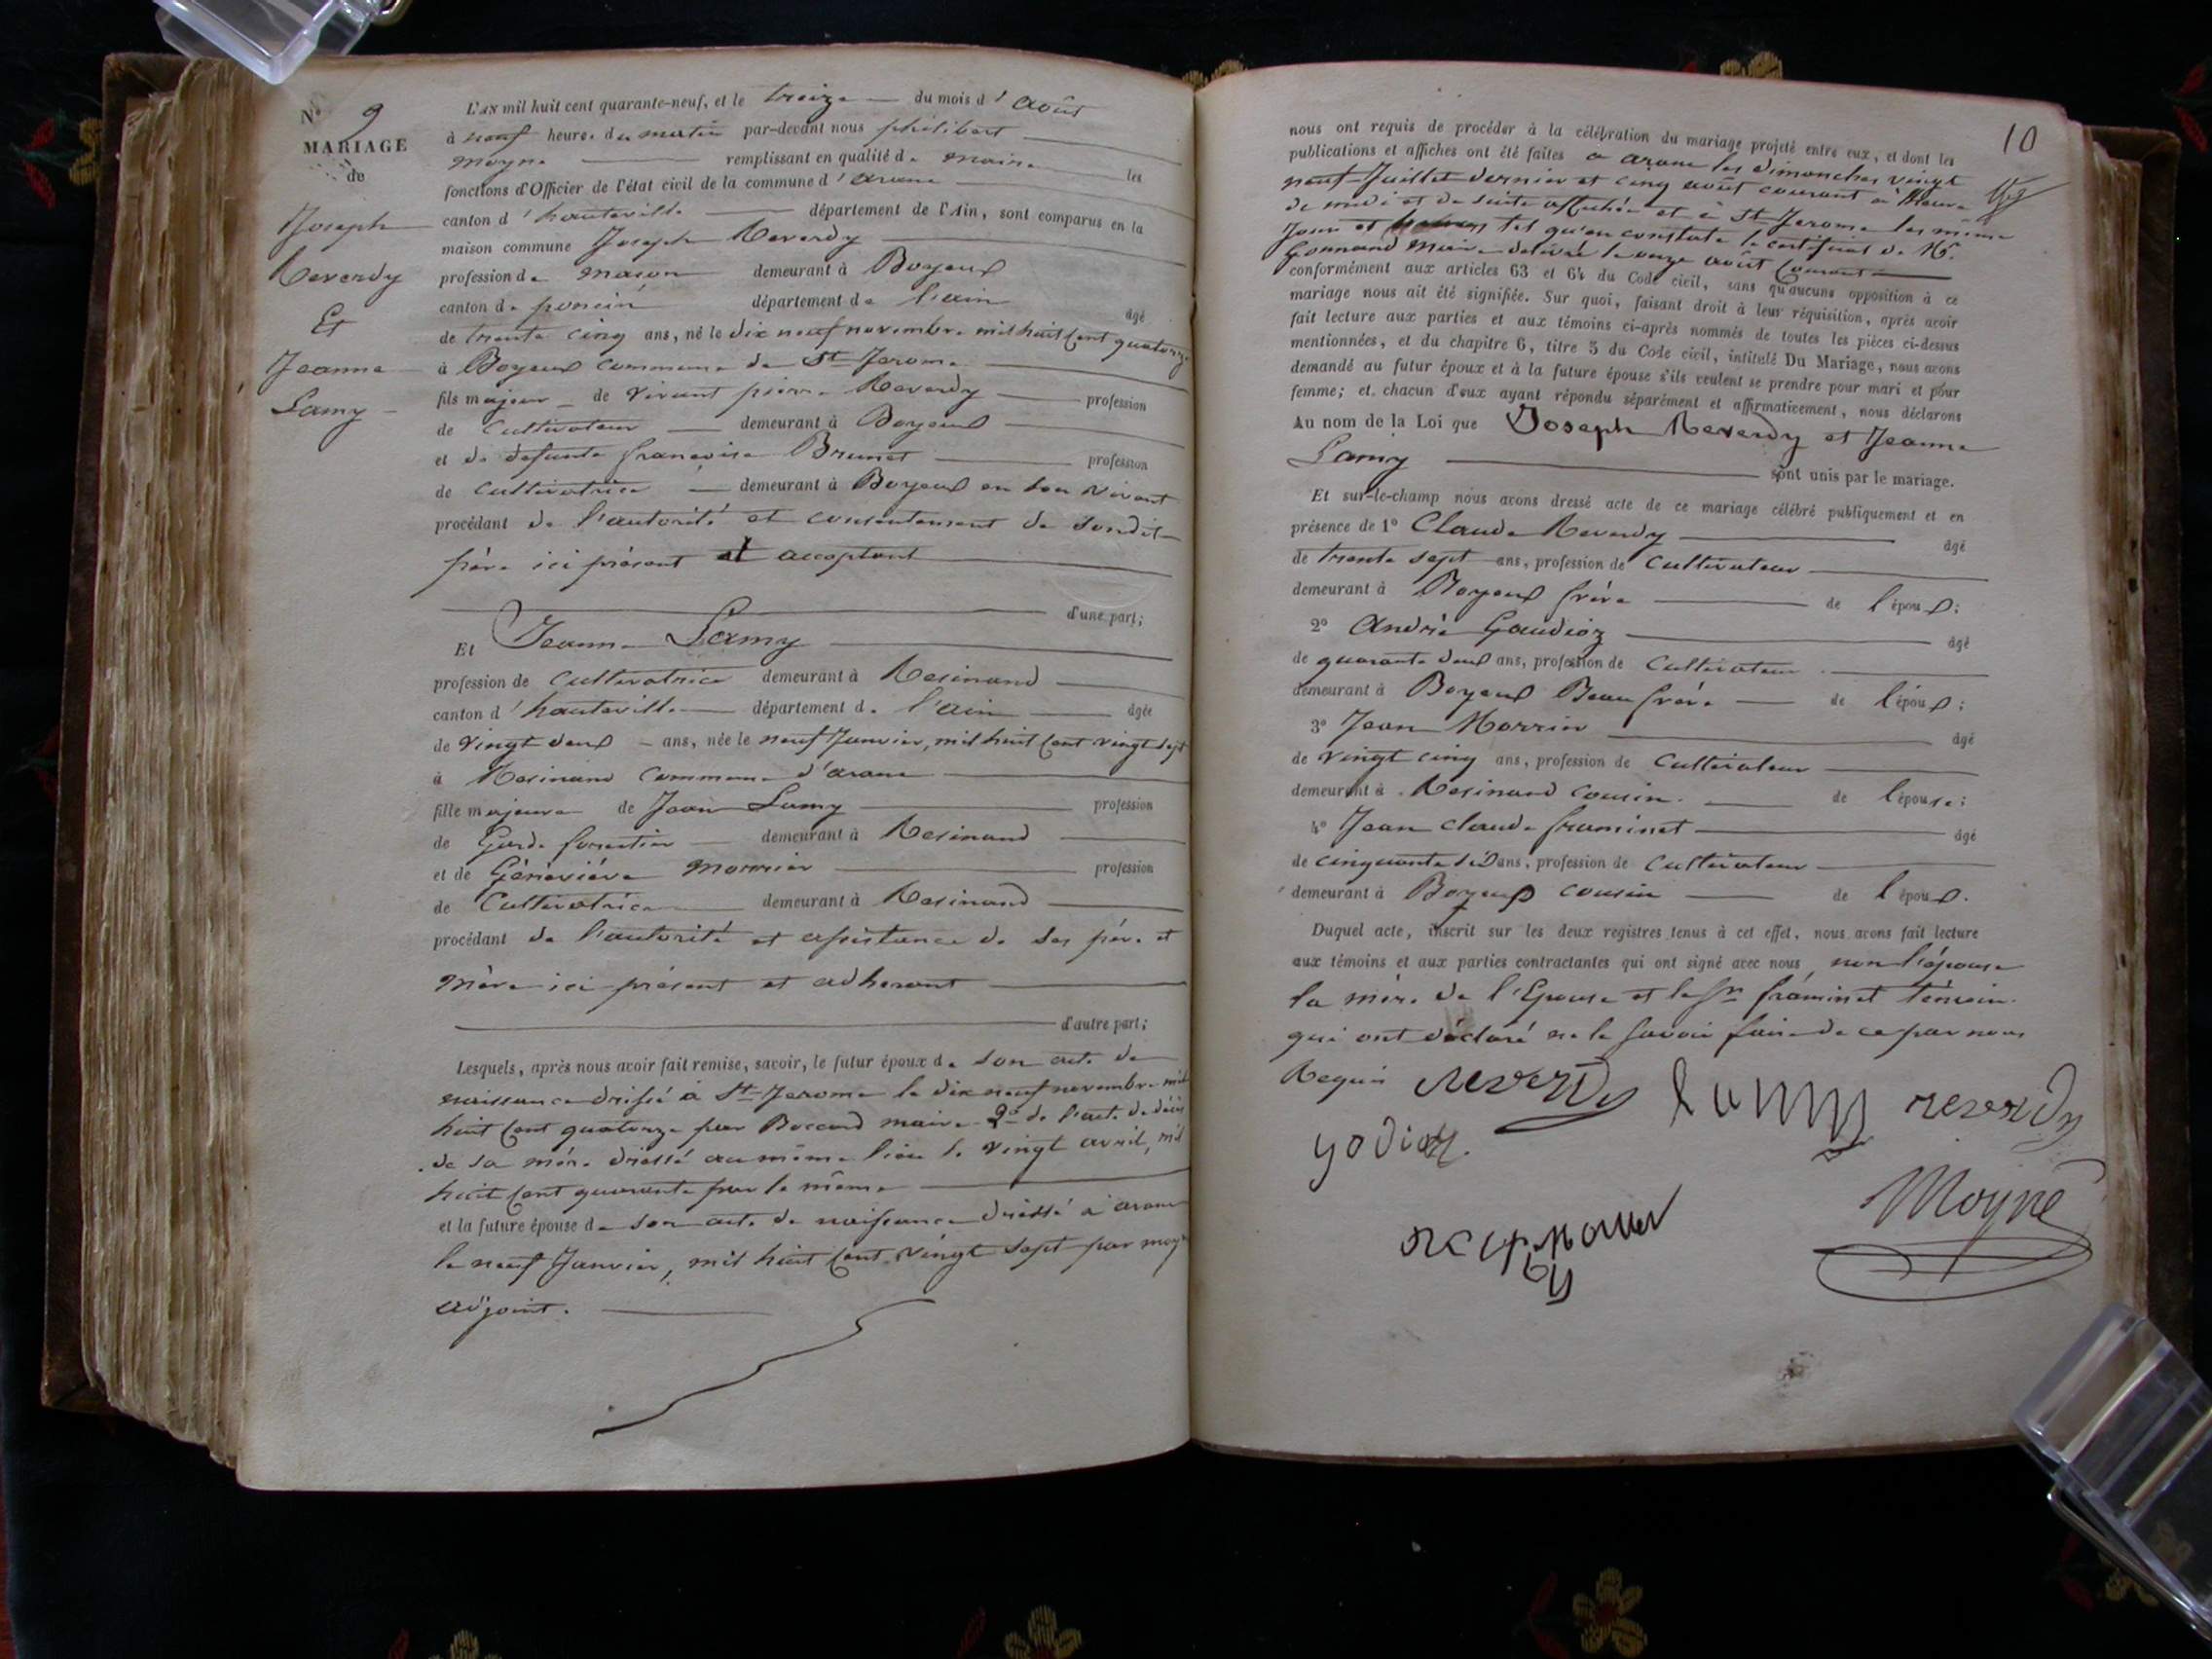 N° 9
MARIAGE
de
Joseph
Reverdy
Et
Jeanne
Lamy
L'AN mil huit cent quarante-neuf, et le treize du mois d'août
à neuf heures du matin par-devant nous philibert
moyne remplissant en qualité de maire les
fonctions d'Officier de l'état civil de la commune d'arane
canton d'hauteville département de l'Ain, sont comparus en la
maison commune Joseph Reverdy
profession de maçon demeurant à Boyeux
canton de poncin département de l'ain âgé
de trente cinq ans, né le dix neuf novembre mil huit cent quatorze
à Boyeux commune de St Jerome
fils majeur de vivant pierre Reverdy profession
de cultivateur demeurant à Boyeux
et de defunte françoise Brunet profession
de cultivatrice demeurant à Boyeux en son vivant
procédant de l'autorité et consentement de sondit
père ici présent et acceptant
d'une part;
Et Jeanne Lamy
profession de cultivatrice demeurant à Resinand
canton d'hauteville département de l'ain âgée
de vingt deux ans, née le neuf Janvier, mil huit cent vingt sept
à Resinand commune d'arane
fille majeure de Jean Lamy profession
de Garde forestier demeurant à Resinand
et de Géneviève profession
de Cultivatrice demeurant à Resinand
procédant de l'autorité et assistance de ses père et
mère ici présent et adherant
d'autre part;
Lesquels, après nous avoir fait remise, savoir, le futur époux de son acte de
naissance dressé à St Jerome le dix neuf novembre mil
huit cent quatorze par Boccard maire 2° de l'acte de décès
de sa mère dressé au même lieu le vingt avril, mil
huit cent quarante par le même
et la future épouse de son acte de naissance dressé à arane
le neuf Janvier, mil huit cent vingt sept par moyne
adjoint.
10
nous ont requis de procéder à la célébration du mariage projeté entre eux, et dont les
publications et affiches ont été faites a arane les dimanches vingt
neuf Juillet dernier et cinq août courant à l'heure
de midi et de suite affichée et à St Jerome les même
Jour et tel qu'en constate le certificat de Mr
Gonnand Maire delivré le onze août courant
conformément aux articles 63 et 64 du Code civil, sans qu'aucune opposition à ce
mariage nous ait été signifiée. Sur quoi, faisant droit à leur réquisition, après avoir
fait lecture aux parties et aux témoins ci-après nommés de toutes les pièces ci-dessus
mentionnées, et du chapitre 6, titre 5 du Code civil, intitulé Du Mariage, nous avons
demandé au futur époux et à la future épouse s'ils veulent se prendre pour mari et pour
femme; et chacun d'eux ayant répondu séparément et affirmativement, nous déclarons
Au nom de la Loi que Joseph Reverdy et Jeanne
Lamy sont unis par le mariage.
Et sur-le-champ nous avons dressé acte de ce mariage célébré publiquement et en
présence de 1° Claude Reverdy âgé
de trente sept ans, profession de Cultivateur
demeurant à Boyeux frère de l'époux;
2° André Gaudioz âgé
de quarante deux ans, profession de Cultivateur
demeurant à Boyeux Beau frère de l'époux;
3° Jean âgé
de vingt cinq ans, profession de Cultivateur
demeurant à Resinand cousin de l'épouse;
4° Jean Claude framinet âgé
de cinquante ans, profession de Cultivateur
demeurant à Boyeux cousin de l'époux.
Duquel acte, inscrit sur les deux registres tenus à cet effet, nous avons fait lecture
aux témoins et aux parties contractantes qui ont signé avec nous, non l'épouse
la mère de l'Epouse et le Sr framinet témoin
qui ont déclaré ne le savoir faire de ce par nous
Requis reverdy lamy reverdy
godioz
Moyne